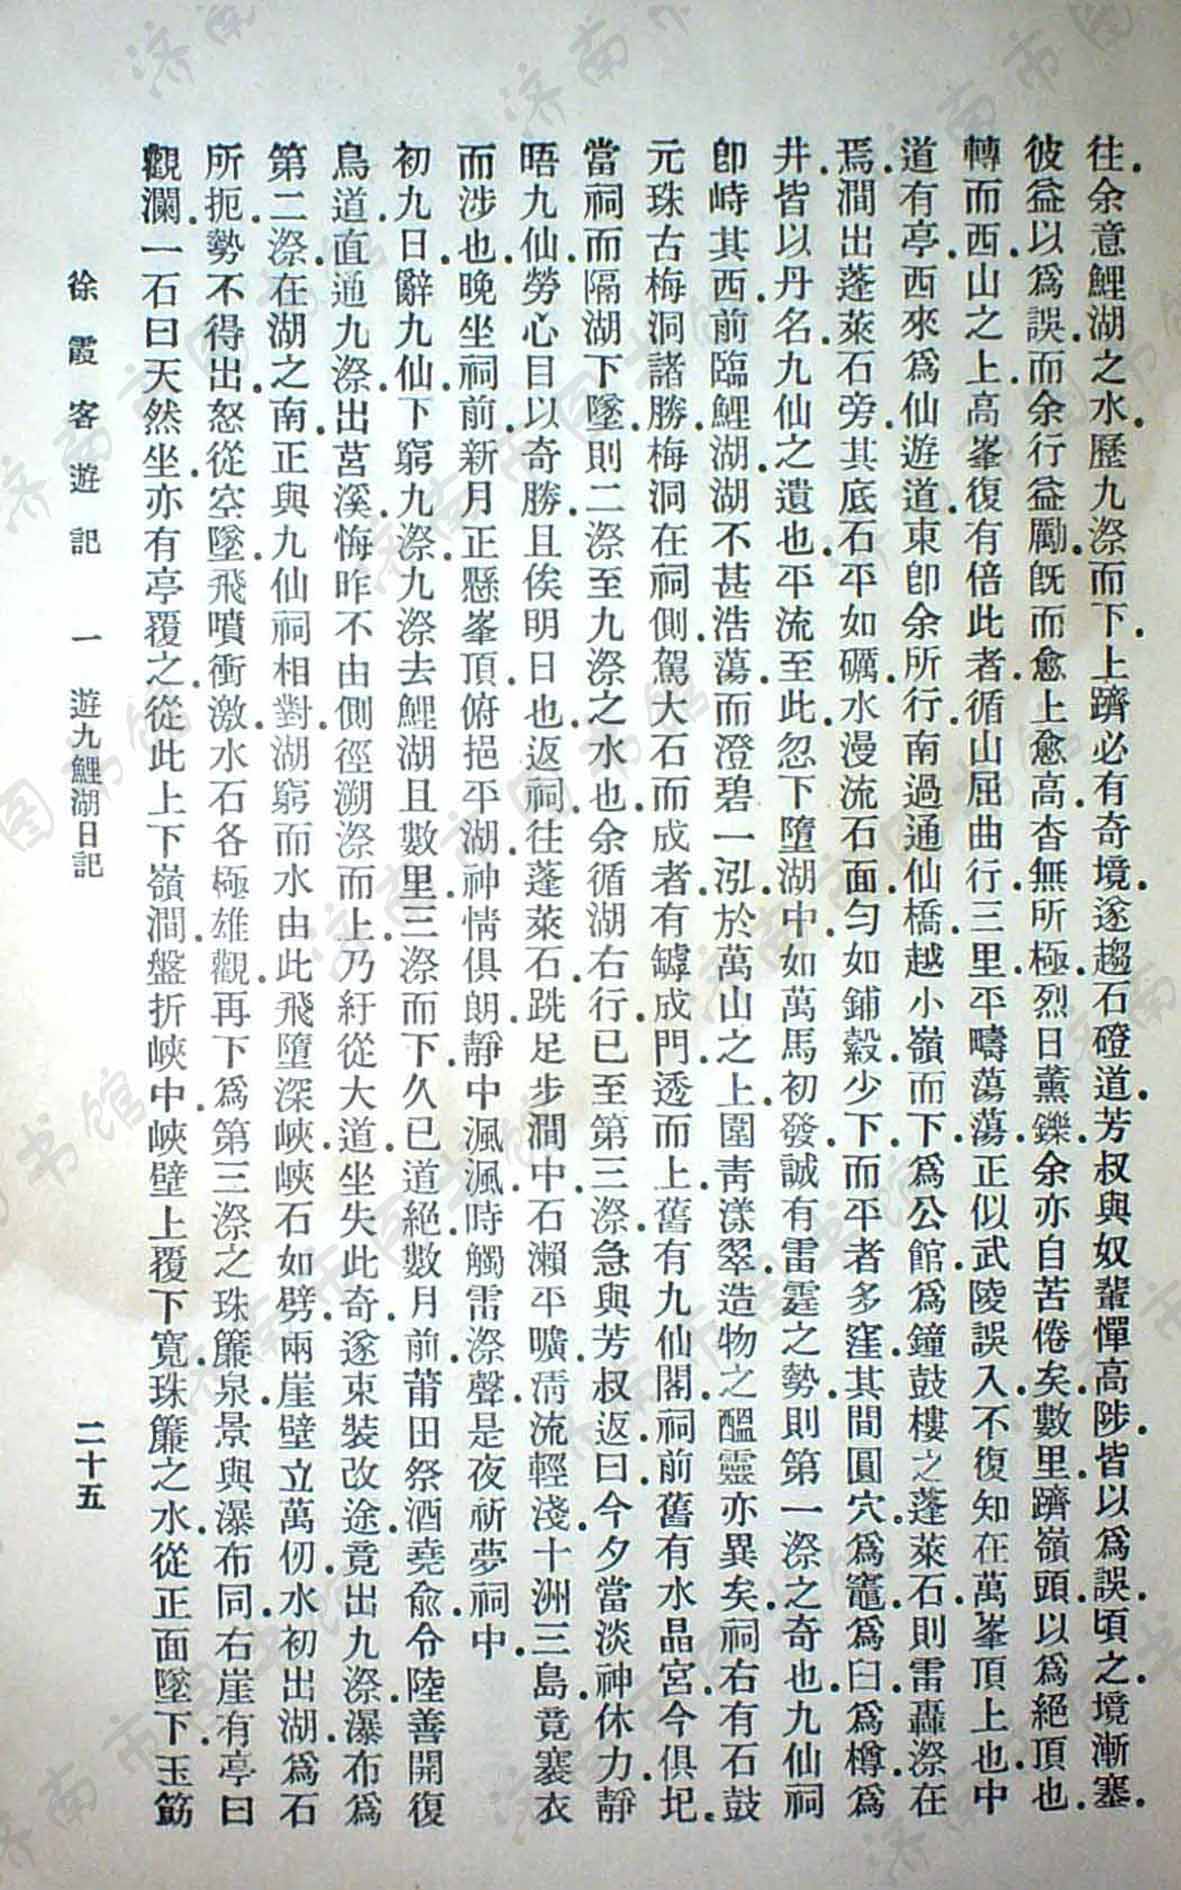 往余意鯉湖之水歷九漈而下上躋必有奇境遂趨石磴道芳叔與奴輩憚高陟皆以爲誤頃之境漸塞
彼益以爲誤而余行益勵旣而愈上愈高杳無所極烈日薰鑠余亦自苦倦矣數里躋嶺頭以爲絕頂也
轉而西山之上高峯復有倍此者循山屈曲行三里平疇蕩蕩正似武陵誤入不復知在萬峯頂上也中
道有亭西來爲仙遊道東卽余所行南過通仙橋越小嶺而下爲公館爲鐘鼓樓之蓬萊石則雷轟漈在
焉澗出蓬萊石旁其底石平如礪水漫流石面勻如鋪縠少下而平者多窪其間圓穴爲竈爲臼爲樽爲
井皆以丹名九仙之遺也平流至此忽下墮湖中如萬馬初發誠有雷霆之勢則第一漈之奇也九仙祠
卽峙其西前臨鯉湖湖不甚浩蕩而澄碧一泓於萬山之上圍靑漾翠造物之醞靈亦異矣祠右有石鼓
元珠古梅洞諸勝梅洞在祠側駕大石而成者有罅成門透而上舊有九仙閣祠前舊有水晶宮今俱圮
當祠而隔湖下墜則二漈至九漈之水也余循湖右行已至第三漈急與芳叔返曰今夕當淡神休力靜
晤九仙勞心目以奇勝且俟明日也返祠往蓬萊石跣足步澗中石瀨平曠淸流輕淺十洲三島竟褰衣
而涉也晚坐祠前新月正懸峯頂俯挹平湖神情俱朗靜中渢渢時觸雷漈聲是夜祈夢祠中
初九日辭九仙下窮九漈九漈去鯉湖且數里三漈而下久已道絕數月前莆田祭酒堯俞令陸善開復
鳥道直通九漈出莒溪悔昨不由側徑溯漈而上乃紆從大道坐失此奇遂束裝改途竟出九漈瀑布爲
第二漈在湖之南正與九仙祠相對湖窮而水由此飛墮深峽峽石如劈兩崖壁立萬仞水初出湖爲石
所扼勢不得出怒從空墜飛噴衝激水石各極雄觀再下爲第三漈之珠簾泉景與瀑布同右崖有亭曰
觀瀾一石曰天然坐亦有亭覆之從此上下嶺澗盤折峽中峽壁上覆下寬珠簾之水從正面墜下玉筯
徐霞客遊記 一 遊九鯉湖日記 二十五